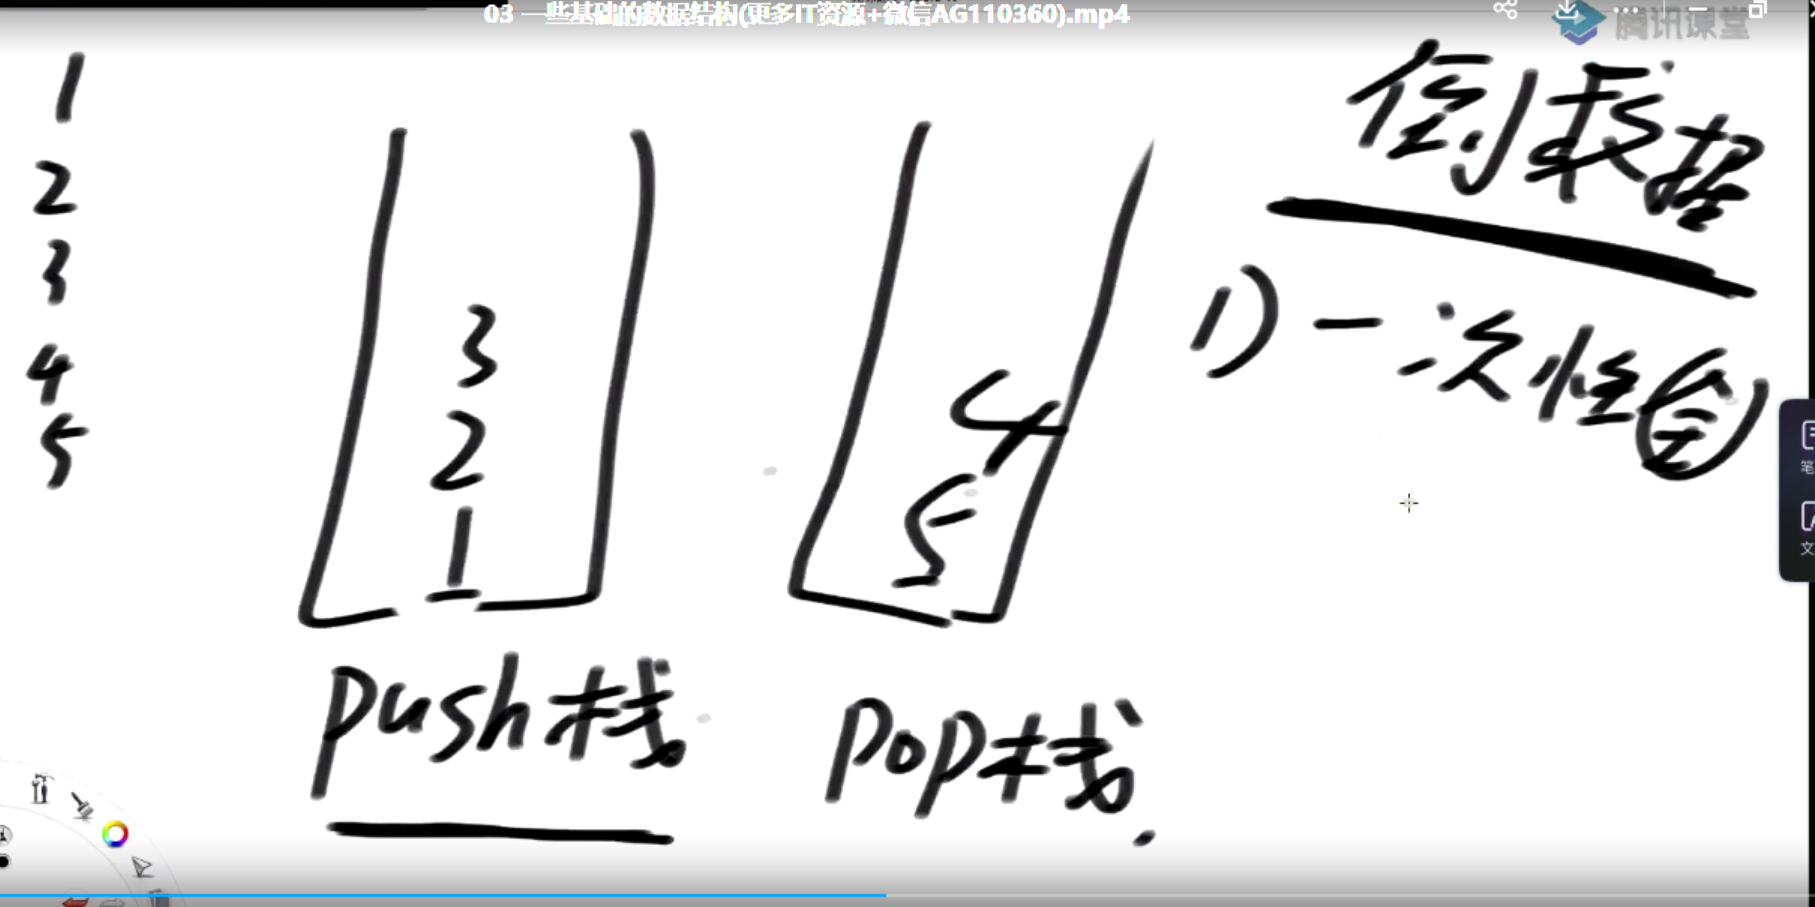 03 一些基础的数据结构(更多IT资源+微信AG110360).mp4
腾讯课堂
1
2
3
4
5
3
2
1
push栈
4
5
pop栈
倒数据
1) 一次性全
笔
文